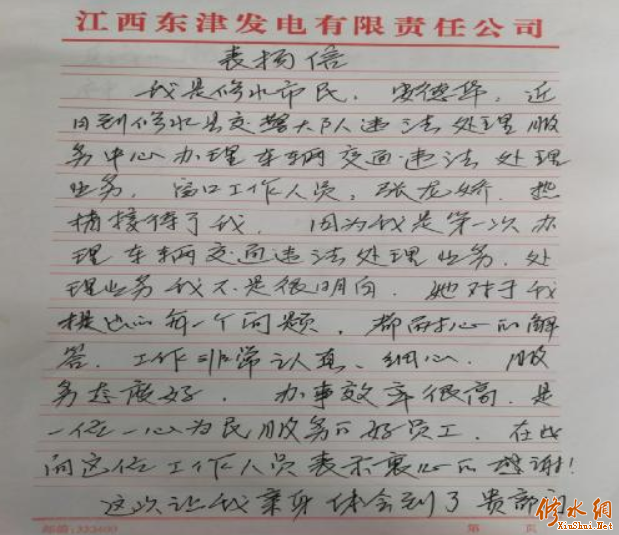 江西东津发电有限责任公司
表扬信
我是修水市民，安德华，近
日到修水县交警大队违法处理服
务中心办理车辆交通违法处理
业务，窗口工作人员，张龙娇，热
情接待了我，因为我是第一次办
理车辆交通违法处理业务，处
理业务我不是很明白，她对于我
提出的每一个问题，都耐心的解
答，工作非常认真、细心，服
务态度好，办事效率很高，是
一位一心为民服务的好员工，在此
向这位工作人员表示衷心的感谢！
这次让我亲身体会到了贵部门
邮编:332400
第 页
修水網
XiuShui.Net